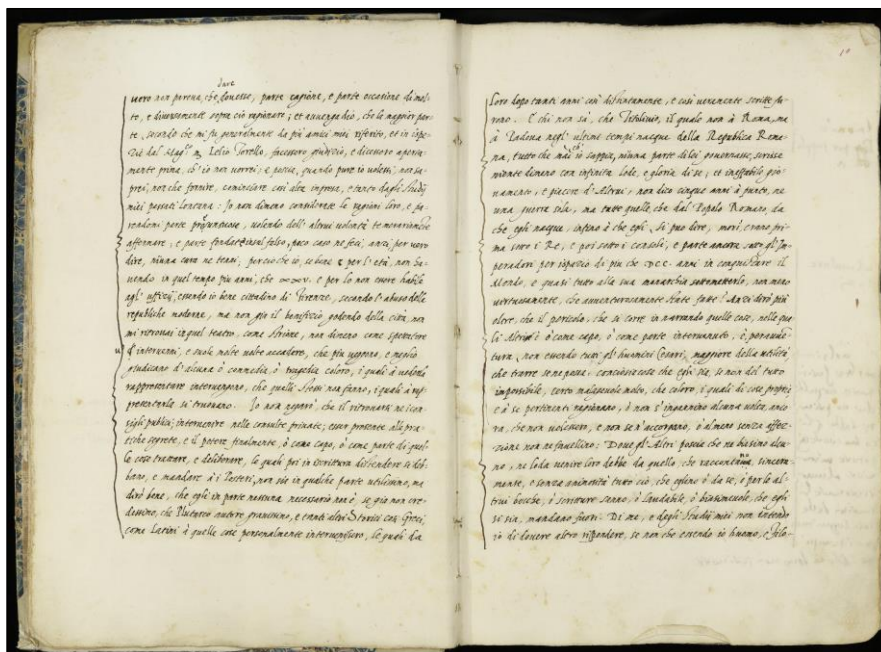 dare
uero non pareua, che douesse; parte cagione, e parte occasione di mol-
to, e diuersamente sopra ciò ragionare; et auuenga dio, che la maggior par-
te, secondo che mi fu generalmente da più amici miei riferito, et in ispe-
zie dal Mag.co Lelio Torello, facessero giudizio, e dicessero aperta-
mente prima, ch'io non uorrei; e poscia, quando pure io uolessi, non sa-
prei, non che fornire, cominciare così alta impresa, e tanto dagli studij
miei passati lontana: Io non dimeno considerate le ragioni loro, e pa-
rendomi parte presuntuose, uolendo dell'altrui uolontà temerariamente
affermare; e parte fondate sul falso, poco caso ne feci, anzi per uero
dire, niuna cura ne tenni; percioche io, se bene e per l'età, non ha-
uendo in quel tempo più anni, che xxv. e per lo non essere habile
agl'uffizij, essendo io bene cittadino di Firenze, secondo l'abuso delle
republiche moderne, ma non già il benefizio godendo della città, non
mi ritrouai in quel teatro, come strione, non dimeno come spettatore
u'interuenni, e suole molte uolte accadere, che più ueggono, e meglio
giudicano d'alcuna ò commedia, ò tragedia coloro, i quali à uederla
rappresentare interuengono, che quelli stessi non fanno, i quali à rap-
presentarla si truouano. Io non negarò, che il ritrouarsi ne i con-
sigli publici; interuenire nelle consulte priuate; esser presente alle pra-
tiche segrete, e il potere finalmente, ò come capo, ò come parte di quel-
le cose trattare, e deliberare, le quali poi in iscrittura distendere si deb-
bano, e mandare à i Posteri, non sia in qualche parte utilissimo, ma
dirò bene, che egli in parte nessuna necessario non è, se già non cre-
dessimo, che Plutarco autore grauissimo, e tanti altri Storici così Greci,
come Latini à quelle cose personalmente interuenissero, le quali da
loro dopo tanti anni così distintamente, e così ueramente scritte fu-
rono. E chi non sà, che Titoliuio, il quale non à Roma, ma
à Padoua negl'ultimi tempi nacque della Republica Roma-
na, tutto che mai ch'io sappia, niuna parte di lei gouernasse, scrisse
niente dimeno con infinita lode, e gloria di se; et ineffabile gio-
uamento, e piacere d'Altrui; non dico cinque anni à punto, ne
una guerra sola, ma tutte quelle, che dal Popolo Romano, da
che egli nacque, infino à che egli, si può dire, morì, erano pri-
ma sotto i Re, e poi sotto i consoli, e parte ancora sotto gl'Im-
peradori per ispazio di più che DCC. anni in conquistare il
Mondo, e quasi tutto alla sua monarchia sottometterlo, non meno
uertuosamente, che auuenturosamente state fatte? Anzi dirò più
oltre, che il pericolo, che si corre in narrando quelle cose, nelle qua-
li Altri è ò come capo, ò come parte interuenuto, è, perauuen-
tura, non essendo tutti gl'huomini Cesari, maggiore della utilità,
che trarre se ne possa; conciosia cosa che egli sia, se non del tutto
impossibile, certo malageuole molto, che coloro, i quali di cose proprie,
e à se pertinenti ragionano, ò non s'ingannino alcuna uolta, anco-
ra, che non uolessero, e non se n'accorgano, ò almeno senza affez-
zione non ne fauellino: Doue gl'Altri poscia che ne biasimo alcu-
no, ne loda uenire loro debbe da quello, che raccontano, sincera-
mente, e senza animosità tutto ciò, che eglino ò da se, ò per le al-
trui bocche, ò scritture sanno, ò laudabile, ò biasimeuole, che egli
si sia, mandano fuori. Di me, e degli studij miei non intendo
io di douere altro rispondere, se non che essendo io huomo, e filo-